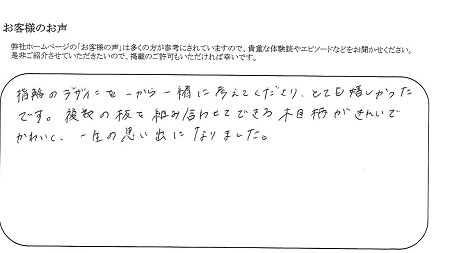 お客様のお声
弊社ホームページの「お客様の声」は多くの方が参考にされていますので、貴重な体験談やエピソードなどをお聞かせください。
是非ご紹介させていただきたいので、掲載のご許可もいただければ幸いです。
指輪のデザインを一から一緒に考えてくださり、とても嬉しかった
です。複数の板を組み合わせてできる木目柄がきれいで
かわいく、一生の思い出になりました。